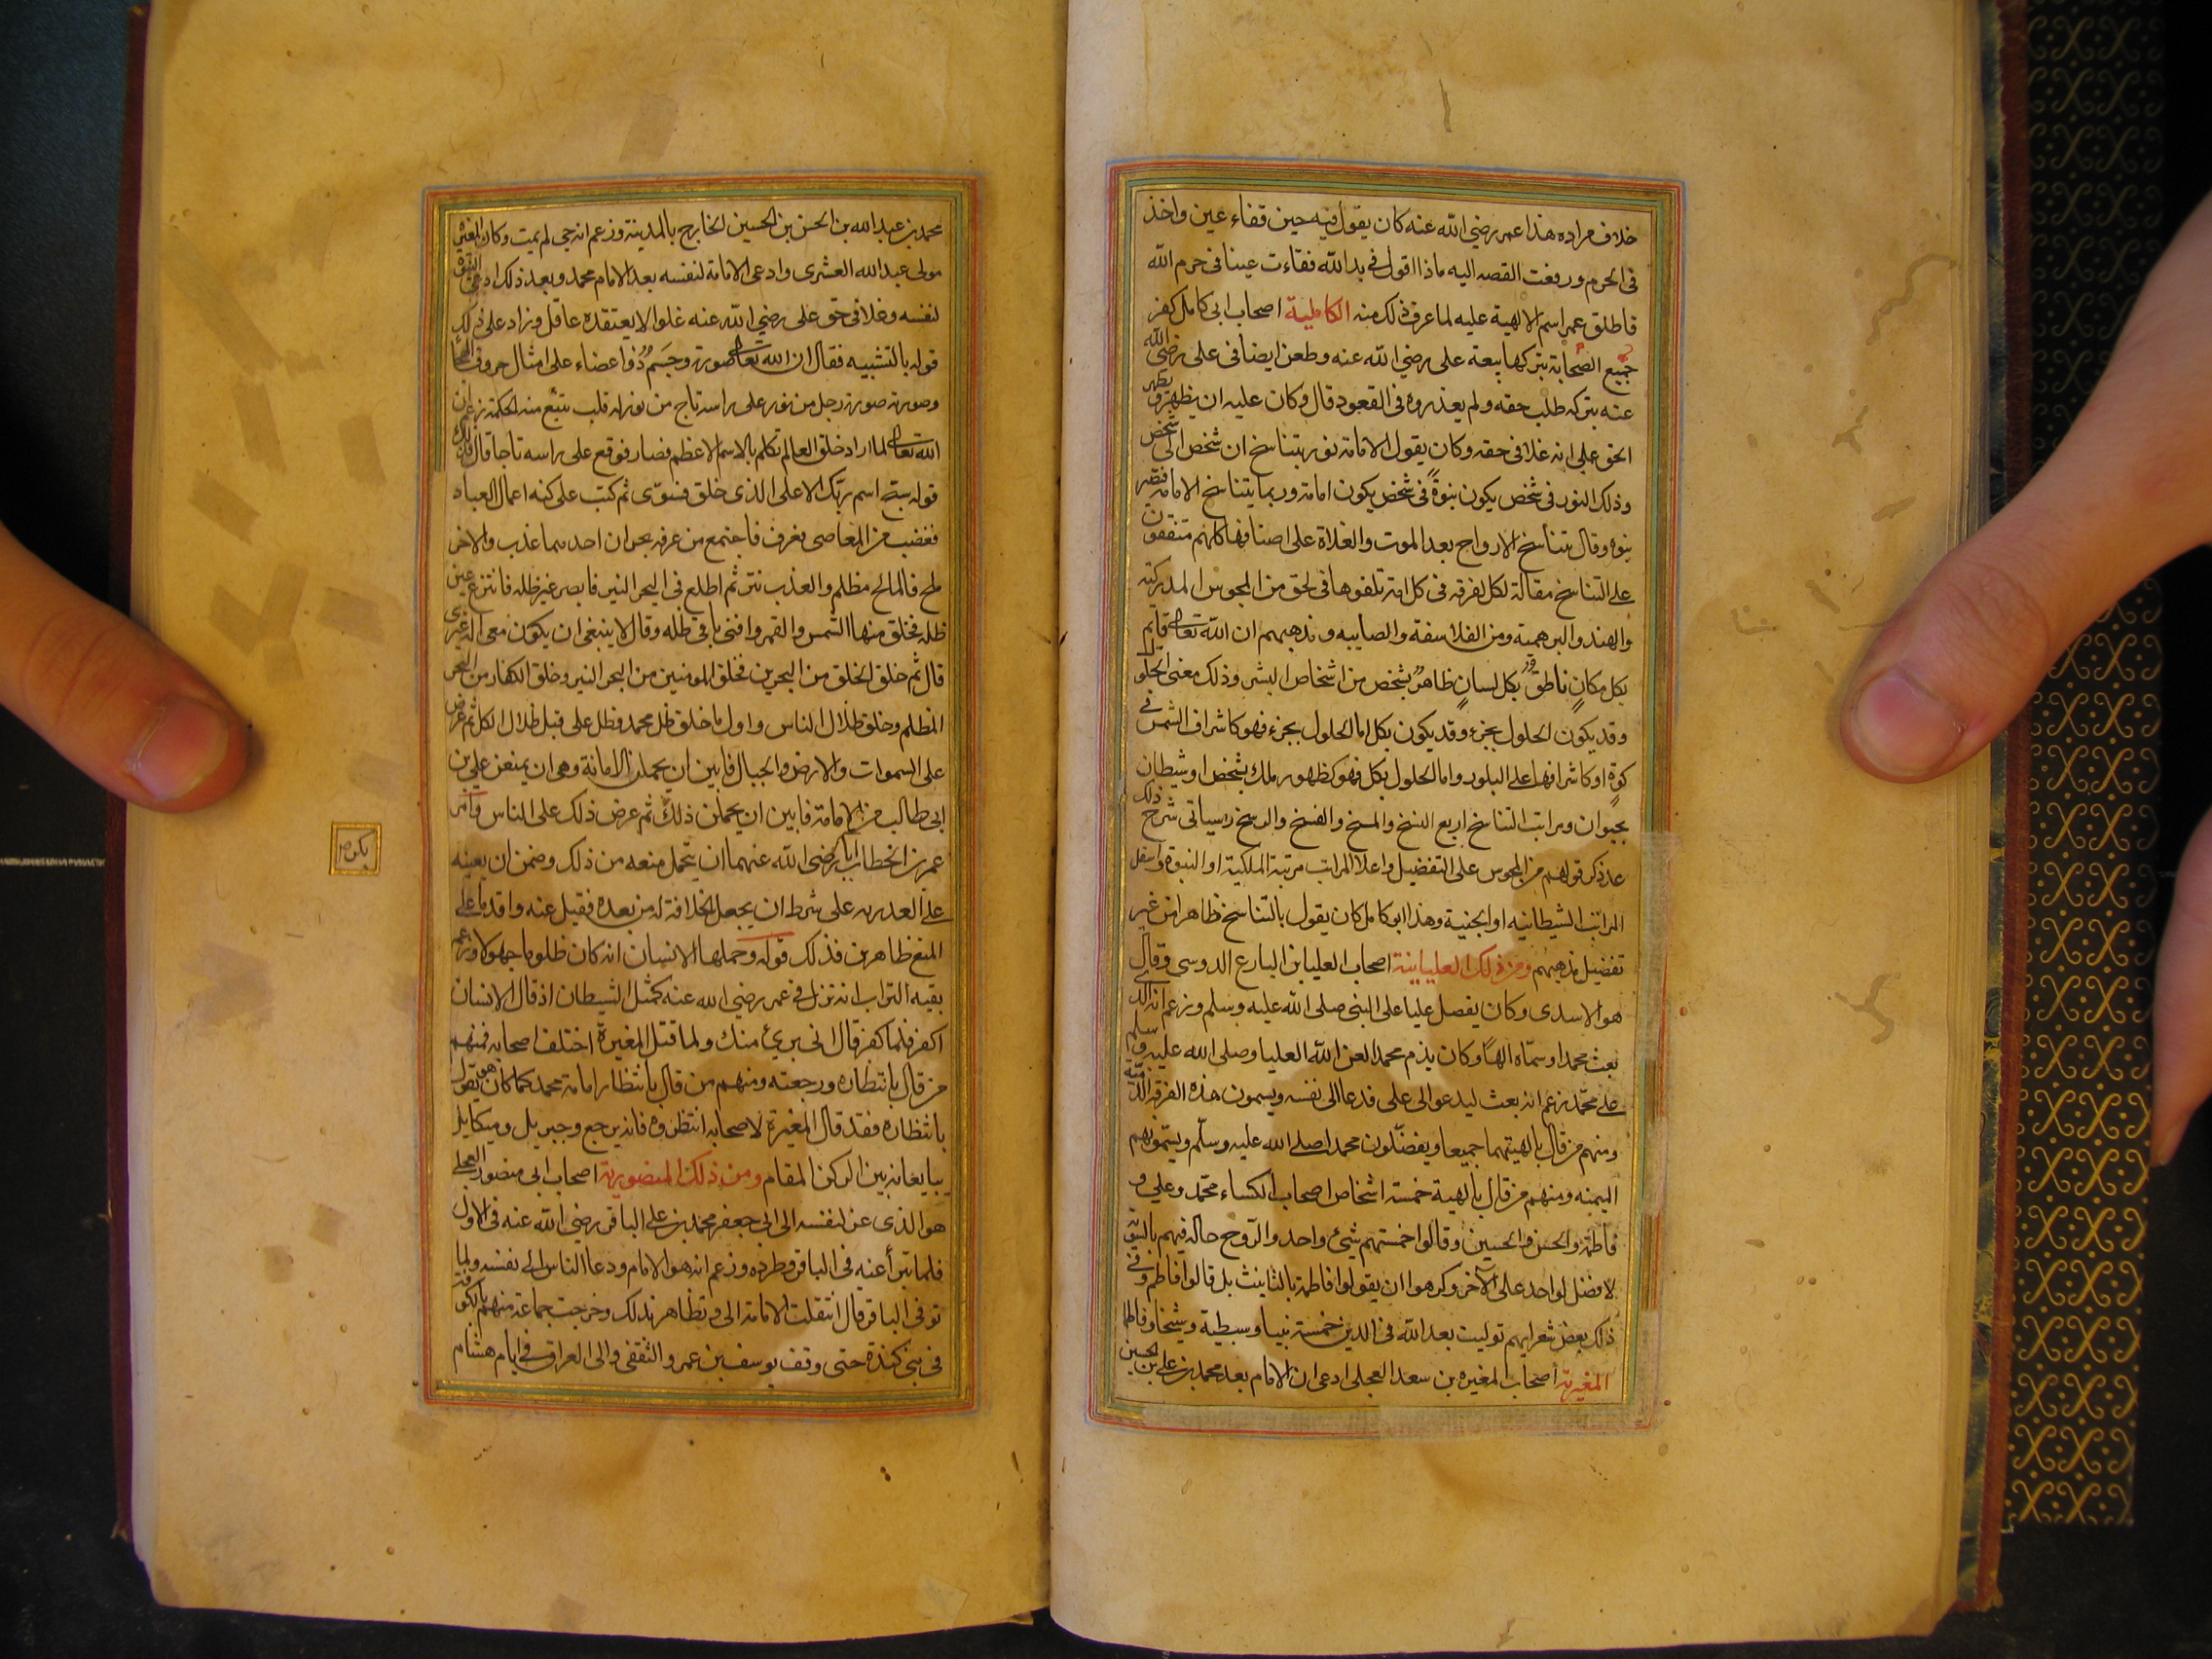 خلاف مراده هذا عمر رضي الله عنه كان يقول فيه حين فقاء عين واخذ
في الحرم ورفعت القصه اليه ماذا اقول في يد الله فقاءت عينا في حرم الله
فاطلق عمر اسم الالهية عليه لما عرف ذلك منه الكاملية اصحاب ابي كامل كفر
جميع الصحابة بتركها بيعة على رضي الله عنه وطعن ايضا في على رضي الله
عنه بتركه طلب حقه ولم يعذروه في القعود قال وكان عليه ان يظهر
الحق على انه غلا في حقه وكان يقول الامامة نور يتناسخ ان شخص الى شخص
وذلك النور في شخص يكون نبوة في شخص يكون امامة وربما يتناسخ الامامة فتصير
نبوة وقال بتناسخ الارواح بعد الموت والغلاة على اصنافها كلهم متفقون
على التناسخ مقالة لكل لفرقه في كل امة تلقوها في لحق من المجوس المزدكية
والهند والبرهمية ومن الفلاسفة والصابيه ومذهبهم ان الله تعالى قايم
بكل مكان ناطق بكل لسان ظاهر بشخص من اشخاص البشر وذلك معنى الحلول
وقد يكون الحلول بجزء وقد يكون بكل اما الحلول بجزء فهو كاشراف الشمس في
كوة او كاشرافها على البلور واما الحلول بكل فهو كظهور ملك بشخص او شيطان
بحيوان ومراتب التناسخ اربع النسخ والمسخ والفسخ والرسخ وسياتي شرح ذلك
عد ذكر قولهم من المجوس على التفضيل واعلا المراتب مرتبة الملكية او النبوة واسفل
المراتب الشيطانيه او الجنية وهذا ابو كامل كان يقول بالتناسخ ظاهرا من غير
تفضيل مذهبهم ومن ذلك العليابية اصحاب العليا بن البارع الدوسي وقال
هو الاسدى وكان يفضل عليا على النبي صلى الله عليه وسلم وزعم انه الذي
بعث محمدا وسماه الها وكان يذم محمدا لعن الله العليا وصلى الله عليه وسلم
على محمد زعم انه بعث ليدعو الى على فدعا الى نفسه ويسمون هذه الفرقه الذمية
ومنهم من قال بالهيتهما جميعا ويفضلون محمدا صلى الله عليه وسلم ويسمونهم
الميمنه ومنهم من قال بالهية خمسة اشخاص اصحاب الكساء محمد وعلي و
فاطمة والحسن والحسين وقالوا خمستهم شيئ واحد والروح حالة فيهم بالسوية
لا فضل لواحد على الآخر وكرهوا ان يقولوا فاطمة بالتانيث بل قالوا فاطم وفي
ذلك بعض شعرايهم توليت بعد الله في الدين خمسة نبيا وسبطية وشيخا وفاطما
المغيرية اصحاب المغيره بن سعد العجلى ادعى ان الامام بعد محمد بن على بن الحسين
محمد بن عبد الله بن الحسن بن الحسين الخارج بالمدينة وزعم انه حي لم يمت وكان المغيرة
مولى عبد الله العشرى وادعى الامامة لنفسه بعد الامام محمد وبعد ذلك ادعى النبوة
لنفسه وغلا في حق على رضي الله عنه غلوا لا يعتقده عاقل وزاد على ذلك
قوله بالتشبيه فقال ان الله تعالى صورة وجسم ذو اعضاء على امثال حروف الهجا
وصورته صورة رجل من نور على راسه تاج من نور له قلب يتبع منه الحكمة زعم ان
الله تعالى لما اراد خلق العالم تكلم بالاسم الاعظم فصار فوقع على راسه تاجا قال وذلك
قوله سبح اسم ربك الاعلى الذى خلق فسوى ثم كتب على كفه اعمال العباد
فغضب من المعاصى فعرق فاجتمع من عرقه بحران احدهما عذب والاخر
ملح فالمالح مظلم والعذب نير ثم اطلع في البحر النير فابصر غير ظله فانتزع عين
ظله فخلق منها الشمس والقمر وافنى باقي ظله وقال لا ينبغى ان يكون معى اله غيرى
قال ثم خلق الخلق من البحرين فخلق المومنين من البحر النير وخلق الكفار من البحر
المظلم وخلق ظلال الناس واول ما خلق ظل محمد وظل على قبل ظلال الكل ثم عرض
على السموات والارض والجبال فابين ان يحملن الامانة وهى ان يمنعن على بن
ابى طالب من الامامة فابين ان يحملن ذلك ثم عرض ذلك على الناس وامر
عمر بن الخطاب ابا بكر رضى الله عنهما ان يتحمل منعه من ذلك وضمن ان يعينه
على الغدر به على شرط ان يجعل الخلافة له من بعده فقبل عنه واقدما على
المنع ظاهرين فذلك قوله وحملها الانسان انه كان ظلوما جهولا وزعم
بقيه التراب انه نزل في عمر رضى الله عنه كمثل الشيطان اذ قال الانسان
اكفر فلما كفر قال انى برئ منك ولما قتل المغيرة اختلف اصحابه فمنهم
من قال بانتظاره ورجعته ومنهم من قال بانتظار امامة محمد كما كان هو يقول
بانتظاره فقد قال المغيرة لاصحابه انتظروه فانه يرجع وجبريل وميكايل
يبايعانه بين الركن المقام ومن ذلك المنصورية اصحاب ابى منصور العجلى
هو الذى عز لنفسه الى ابى جعفر محمد بن على الباقر رضي الله عنه في الاول
فلما تبرأ عنه في الباقر وطرده وزعم انه هو الامام ودعا الناس الى نفسه ولما
توفى الباقر قال انتقلت الامامة الى وتظاهر بذلك وخرجت جماعة منهم بالكوفة
في بنى كندة حتى وقف يوسف بن عمرو الثقفى والى العراق في ايام هشام